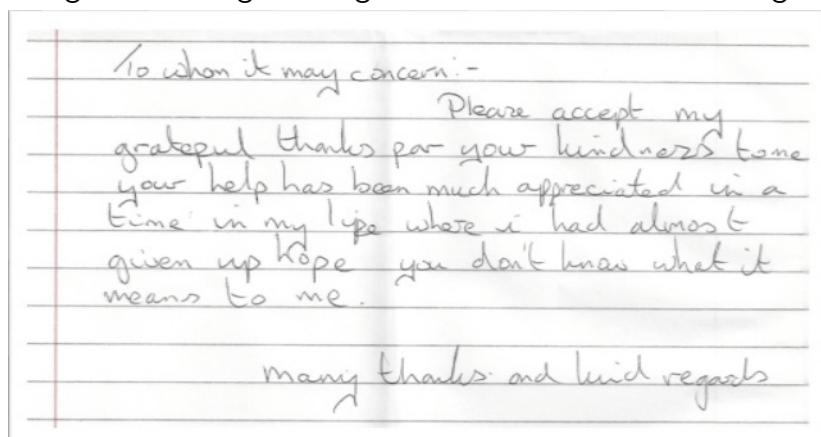 To whom it may concern:-
Please accept my
grateful thanks for your kindness to me
your help has been much appreciated in a
time in my life where i had almost
given up hope you don't know what it
means to me.
many thanks and kind regards